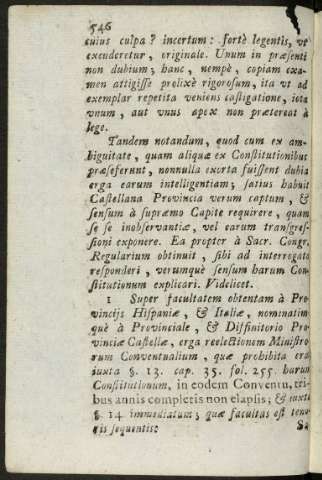 546
cuius culpa? incertum: fortè legentis, vt
excuderetur, originale. Unum in præsenti
non dubium; hanc, nempè, copiam exa-
men attigisse prelixè rigorosum, ita vt ad
exemplar repetita veniens castigatione, iota
vnum, aut vnus apex non prætereat à
lege.
Tandem notandum, quod cum ex am-
biguitate, quam aliquæ ex Constitutionibus
præseferunt, nonnulla exorta fuissent dubia
erga earum intelligentiam; satius habuit
Castellana Provincia verum captum, &
sensum à supræmo Capite requirere, quam
se se inobservantiæ, vel earum transgres-
sioni exponere. Ea propter à Sacr. Congr.
Regularium obtinuit, sibi ad interrogata
responderi, verumquè sensum harum Con-
stitutionum explicari. Videlicet.
1 Super facultatem obtentam à Pro-
vincijs Hispaniæ, & Italiæ, nominatim
què à Provinciale, & Diffinitorio Pro-
vinciæ Castellæ, erga reelectionem Ministro
rum Conventualium, quæ prohibita erat
iuxta §. 13. cap. 35. fol. 255. harum
Constitutionum, in eodem Conventu, tri-
bus annis completis non elapsis; & iuxta
§. 14 immediatum; quæ facultas est teno-
ris sequentis:
Sa